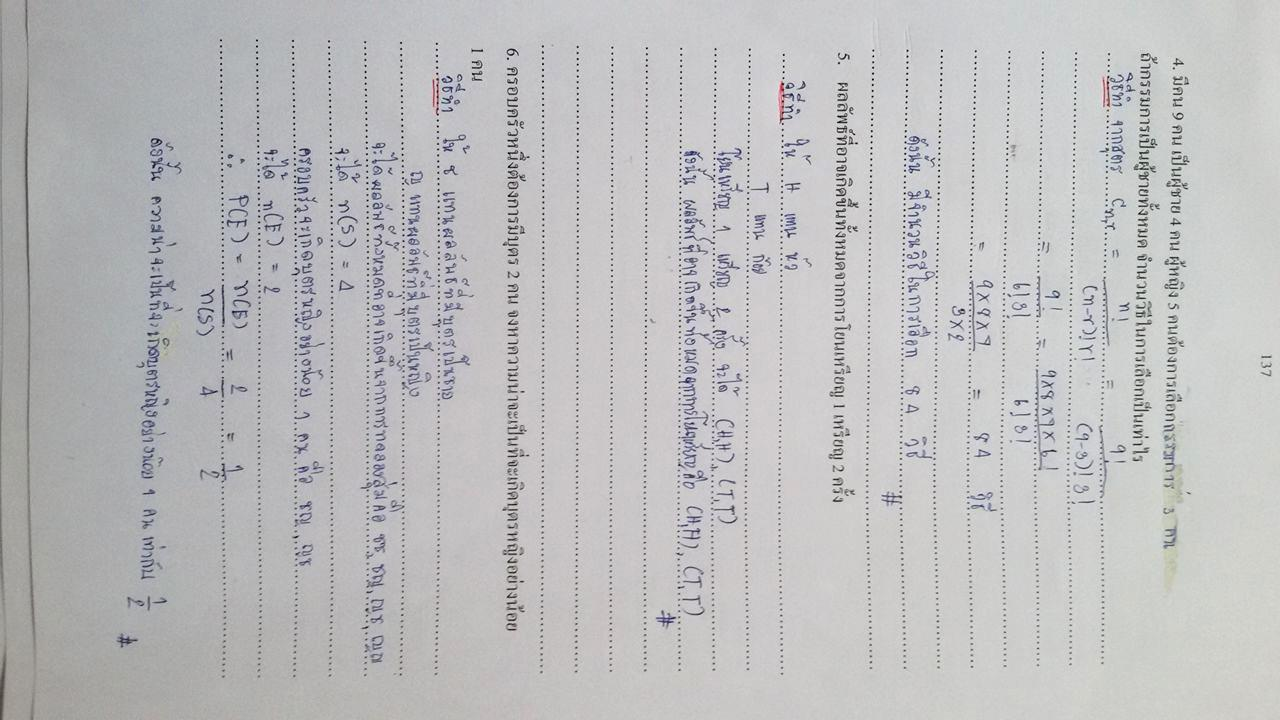 137
4. มีคน 9 คน เป็นผู้ชาย 4 คน ผู้หญิง 5 คนต้องการเลือกกรรมการ 3 คน
ถ้ากรรมการเป็นผู้ชายทั้งหมด จำนวนวิธีในการเลือกเป็นเท่าไร
วิธีทำ จากสูตร Cn,r = n! / (n-r)!r! = 9! / (9-3)!3!
= 9! / 6!3! = 9x8x7x6! / 6!3!
= 9x8x7 / 3x2 = 84 วิธี
ดังนั้น มีจำนวนวิธีในการเลือก 84 วิธี #
5. ผลลัพธ์ที่อาจเกิดขึ้นทั้งหมดจากการโยนเหรียญ 1 เหรียญ 2 ครั้ง
วิธีทำ ให้ H แทน หัว
T แทน ก้อย
โยนเหรียญ 1 เหรียญ 2 ครั้ง จะได้ (H,H), (T,T)
ดังนั้น ผลลัพธ์ที่อาจเกิดขึ้นทั้งหมดจากการโยนเหรียญคือ (H,H), (T,T) #
6. ครอบครัวหนึ่งต้องการมีบุตร 2 คน จงหาความน่าจะเป็นที่จะเกิดบุตรหญิงอย่างน้อย
1 คน
วิธีทำ ให้ ช แทนผลลัพธ์ที่มีบุตรเป็นชาย
ญ แทนผลลัพธ์ที่มีบุตรเป็นหญิง
จะได้ผลลัพธ์ทั้งหมดที่อาจเกิดขึ้นจากการทดลองสุ่มคือ ชช, ชญ, ญช, ญญ
จะได้ n(S) = 4
ครอบครัวจะเกิดบุตรหญิงอย่างน้อย 1 คน คือ ชญ, ญช
จะได้ n(E) = 2
∴ P(E) = n(E) / n(S) = 2 / 4 = 1 / 2
ดังนั้น ความน่าจะเป็นที่จะเกิดบุตรหญิงอย่างน้อย 1 คน เท่ากับ 1/2 #